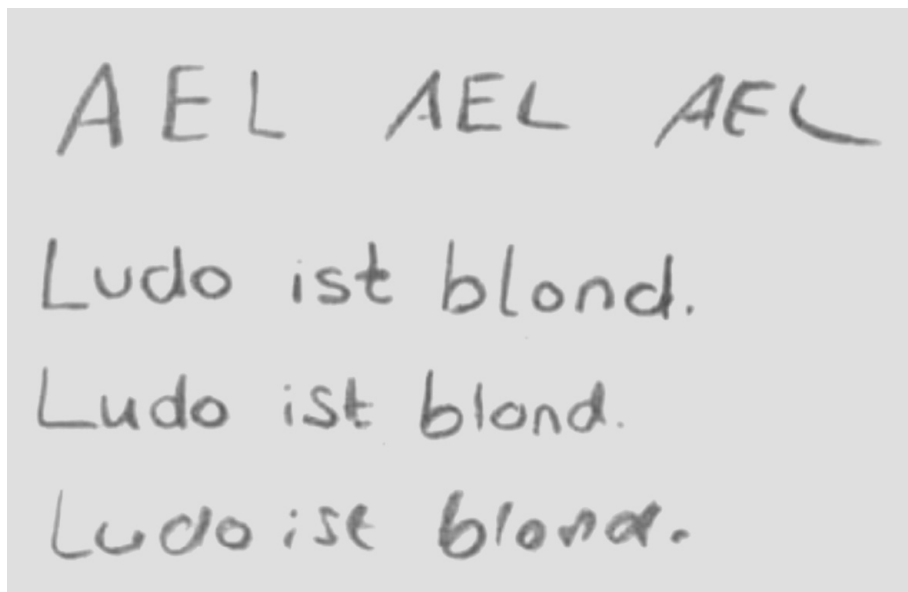 AEL AEL AEL
Ludo ist blond.
Ludo ist blond.
Ludo ist blond.